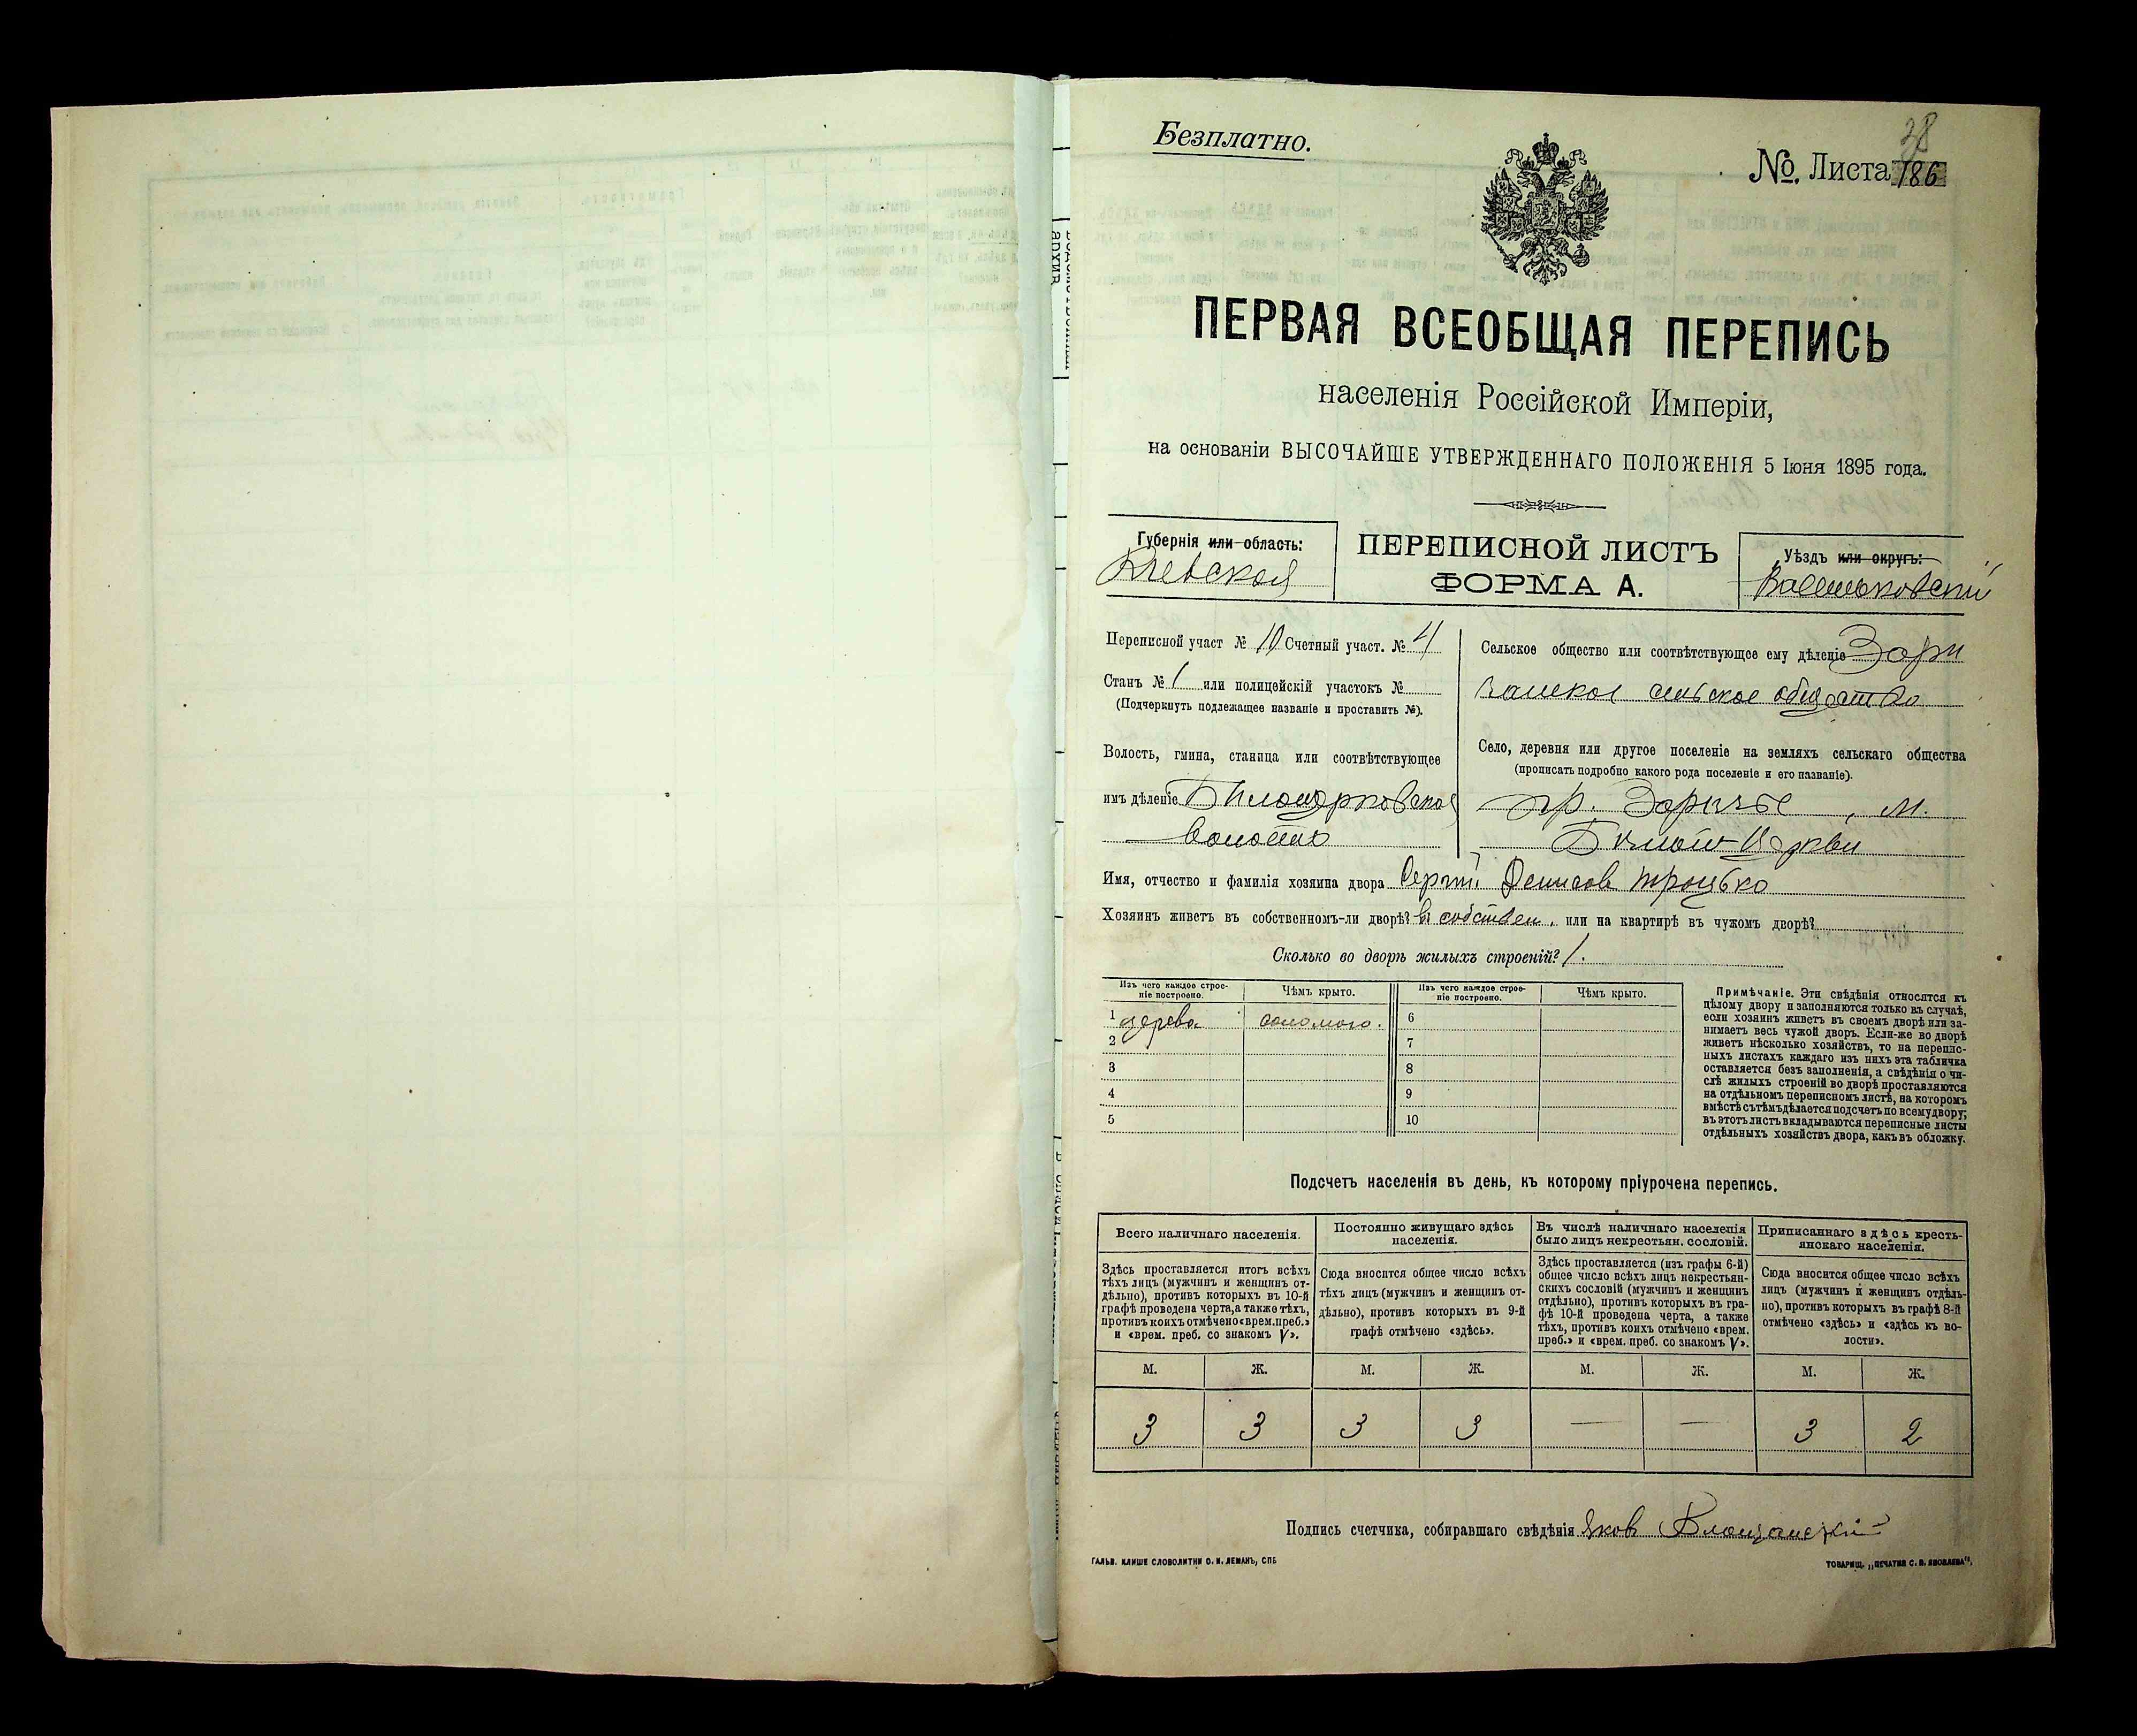 Безплатно.
38
№ Листа 186
ПЕРВАЯ ВСЕОБЩАЯ ПЕРЕПИСЬ
населенія Россійской Имперіи,
на основаніи ВЫСОЧАЙШЕ УТВЕРЖДЕННАГО ПОЛОЖЕНІЯ 5 Іюня 1895 года.
Губернія или область:
Кіевская
ПЕРЕПИСНОЙ ЛИСТЪ
ФОРМА А.
Уѣздъ или округъ:
Васильковскій
Переписной участ № 10 Счетный участ. № 4
Станъ № 1 или полицейскій участокъ №
(Подчеркнуть подлежащее названіе и проставить №).
Волость, гмина, станица или соотвѣтствующее
имъ дѣленіе Бѣлоцерковская
волость
Сельское общество или соотвѣтствующее ему дѣленіе Зари
сельское общество
Село, деревня или другое поселеніе на земляхъ сельскаго общества
(прописать подробно какого рода поселеніе и его названіе).
пр. Заречье, м.
Бѣлой-Церкви
Имя, отчество и фамилія хозяина двора Сергій Денисовъ Троцько
Хозяинъ живетъ въ собственномъ-ли дворѣ? въ собствен. или на квартирѣ въ чужомъ дворѣ?
Сколько во дворѣ жилыхъ строеній? 1.
Изъ чего каждое строе-
ніе построено.
Чѣмъ крыто.
Изъ чего каждое строе-
ніе построено.
Чѣмъ крыто.
1 дерева соломою. 6
2 7
3 8
4 9
5 10
Примѣчаніе. Эти свѣдѣнія относятся къ
цѣлому двору и заполняются только въ случаѣ,
если хозяинъ живетъ въ своемъ дворѣ или за-
нимаетъ весь чужой дворъ. Если-же во дворѣ
живетъ нѣсколько хозяйствъ, то на перепис-
ныхъ листахъ каждаго изъ нихъ эта табличка
оставляется безъ заполненія, а свѣдѣнія о чи-
слѣ жилыхъ строеній во дворѣ проставляются
на отдѣльномъ переписномъ листѣ, на которомъ
вмѣстѣ съ тѣмъ дѣлается подсчетъ по всему двору;
въ этотъ листъ вкладываются переписные листы
отдѣльныхъ хозяйствъ двора, какъ въ обложку.
Подсчетъ населенія въ день, къ которому пріурочена перепись.
Всего наличнаго населенія.
Здѣсь проставляется итогъ всѣхъ
тѣхъ лицъ (мужчинъ и женщинъ от-
дѣльно), противъ которыхъ въ 10-й
графѣ проведена черта, а также тѣхъ,
противъ коихъ отмѣчено «врем. преб.»
и «врем. преб. со знакомъ V».
Постоянно живущаго здѣсь
населенія.
Сюда вносится общее число всѣхъ
тѣхъ лицъ (мужчинъ и женщинъ от-
дѣльно), противъ которыхъ въ 9-й
графѣ отмѣчено «здѣсь».
Въ числѣ наличнаго населенія
было лицъ некрестьян. сословій.
Здѣсь проставляется (изъ графы 6-й)
общее число всѣхъ лицъ некрестьян-
скихъ сословій (мужчинъ и женщинъ
отдѣльно), противъ которыхъ въ гра-
фѣ 10-й проведена черта, а также
тѣхъ, противъ коихъ отмѣчено «врем.
преб.» и «врем. преб. со знакомъ V».
Приписаннаго здѣсь кресть-
янскаго населенія.
Сюда вносится общее число всѣхъ
лицъ (мужчинъ и женщинъ отдѣль-
но), противъ которыхъ въ графѣ 8-й
отмѣчено «здѣсь» и «здѣсь къ во-
лости».
М. Ж. М. Ж. М. Ж. М. Ж.
3 3 3 3 — — 3 2
Подпись счетчика, собиравшаго свѣдѣнія Яковъ
ГАЛЬВ. КЛИШЕ СЛОВОЛИТНИ О. И. ЛЕМАНЪ, СПБ
ТОВАРИЩ. „ПЕЧАТНЯ С. П. ЯКОВЛЕВА“.